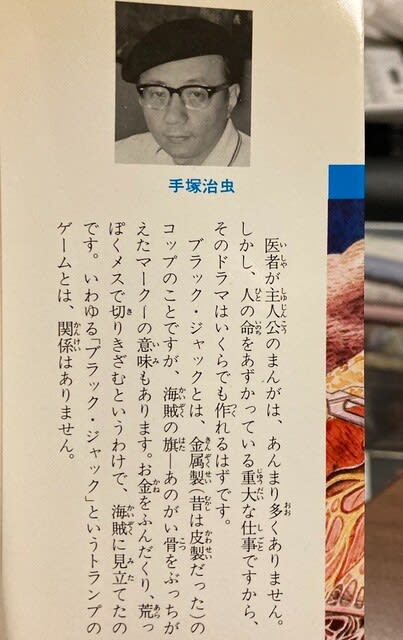 手塚治虫
医者が主人公のまんがは、あんまり多くありません。
しかし、人の命をあずかっている重大な仕事ですから、
そのドラマはいくらでも作れるはずです。
ブラック・ジャックとは、金属製(昔は皮製だった)の
コップのことですが、海賊の旗―あのがい骨をぶっちが
えたマーク―の意味もあります。お金をふんだくり、荒っ
ぽくメスで切りきざむというわけで、海賊に見立てたの
です。いわゆる「ブラック・ジャック」というトランプの
ゲームとは、関係はありません。